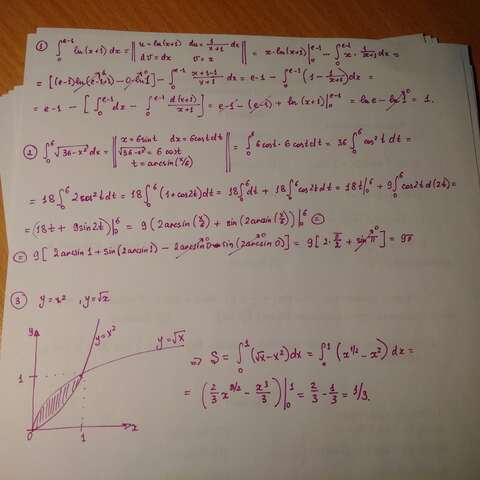 ① ∫₀^(e-1) ln(x+1)dx = ‖ u = ln(x+1) du = 1/(x+1) dx
dv = dx v = x ‖ = x·ln(x+1)|₀^(e-1) - ∫₀^(e-1) x·1/(x+1) dx =
= [(e-1)ln(e-1+1) - 0·ln1] - ∫₀^(e-1) (x+1-1)/(x+1) dx = e-1 - ∫₀^(e-1) (1 - 1/(x+1))dx =
= e-1 - [∫₀^(e-1) dx - ∫₀^(e-1) d(x+1)/(x+1)] = e-1 - (e-1) + ln(x+1)|₀^(e-1) = ln e - ln 1 = 1.
② ∫₀⁶ √(36-x²) dx = ‖ x = 6sint dx = 6cost dt
√(36-x²) = 6cost
t = arcsin(x/6) ‖ = ∫₀⁶ 6cost·6cost dt = 36∫₀⁶ cos²t dt =
= 18∫₀⁶ 2cos²t dt = 18∫₀⁶ (1+cos2t)dt = 18∫₀⁶ dt + 18∫₀⁶ cos2t dt = 18t|₀⁶ + 9∫₀⁶ cos2t d(2t) =
= (18t + 9sin2t)|₀⁶ = 9(2arcsin(x/6) + sin(2arcsin(x/6)))|₀⁶ ⊜
⊜ 9[2arcsin1 + sin(2arcsin1) - 2arcsin0 - sin(2arcsin0)] = 9[2·π/2 + sinπ] = 9π
③ y = x² , y = √x
y
y = x²
y = √x
⇒ S = ∫₀¹ (√x - x²)dx = ∫₀¹ (x^(1/2) - x²) dx =
1
= (2/3 x^(3/2) - x³/3)|₀¹ = 2/3 - 1/3 = 1/3.
0 1 x